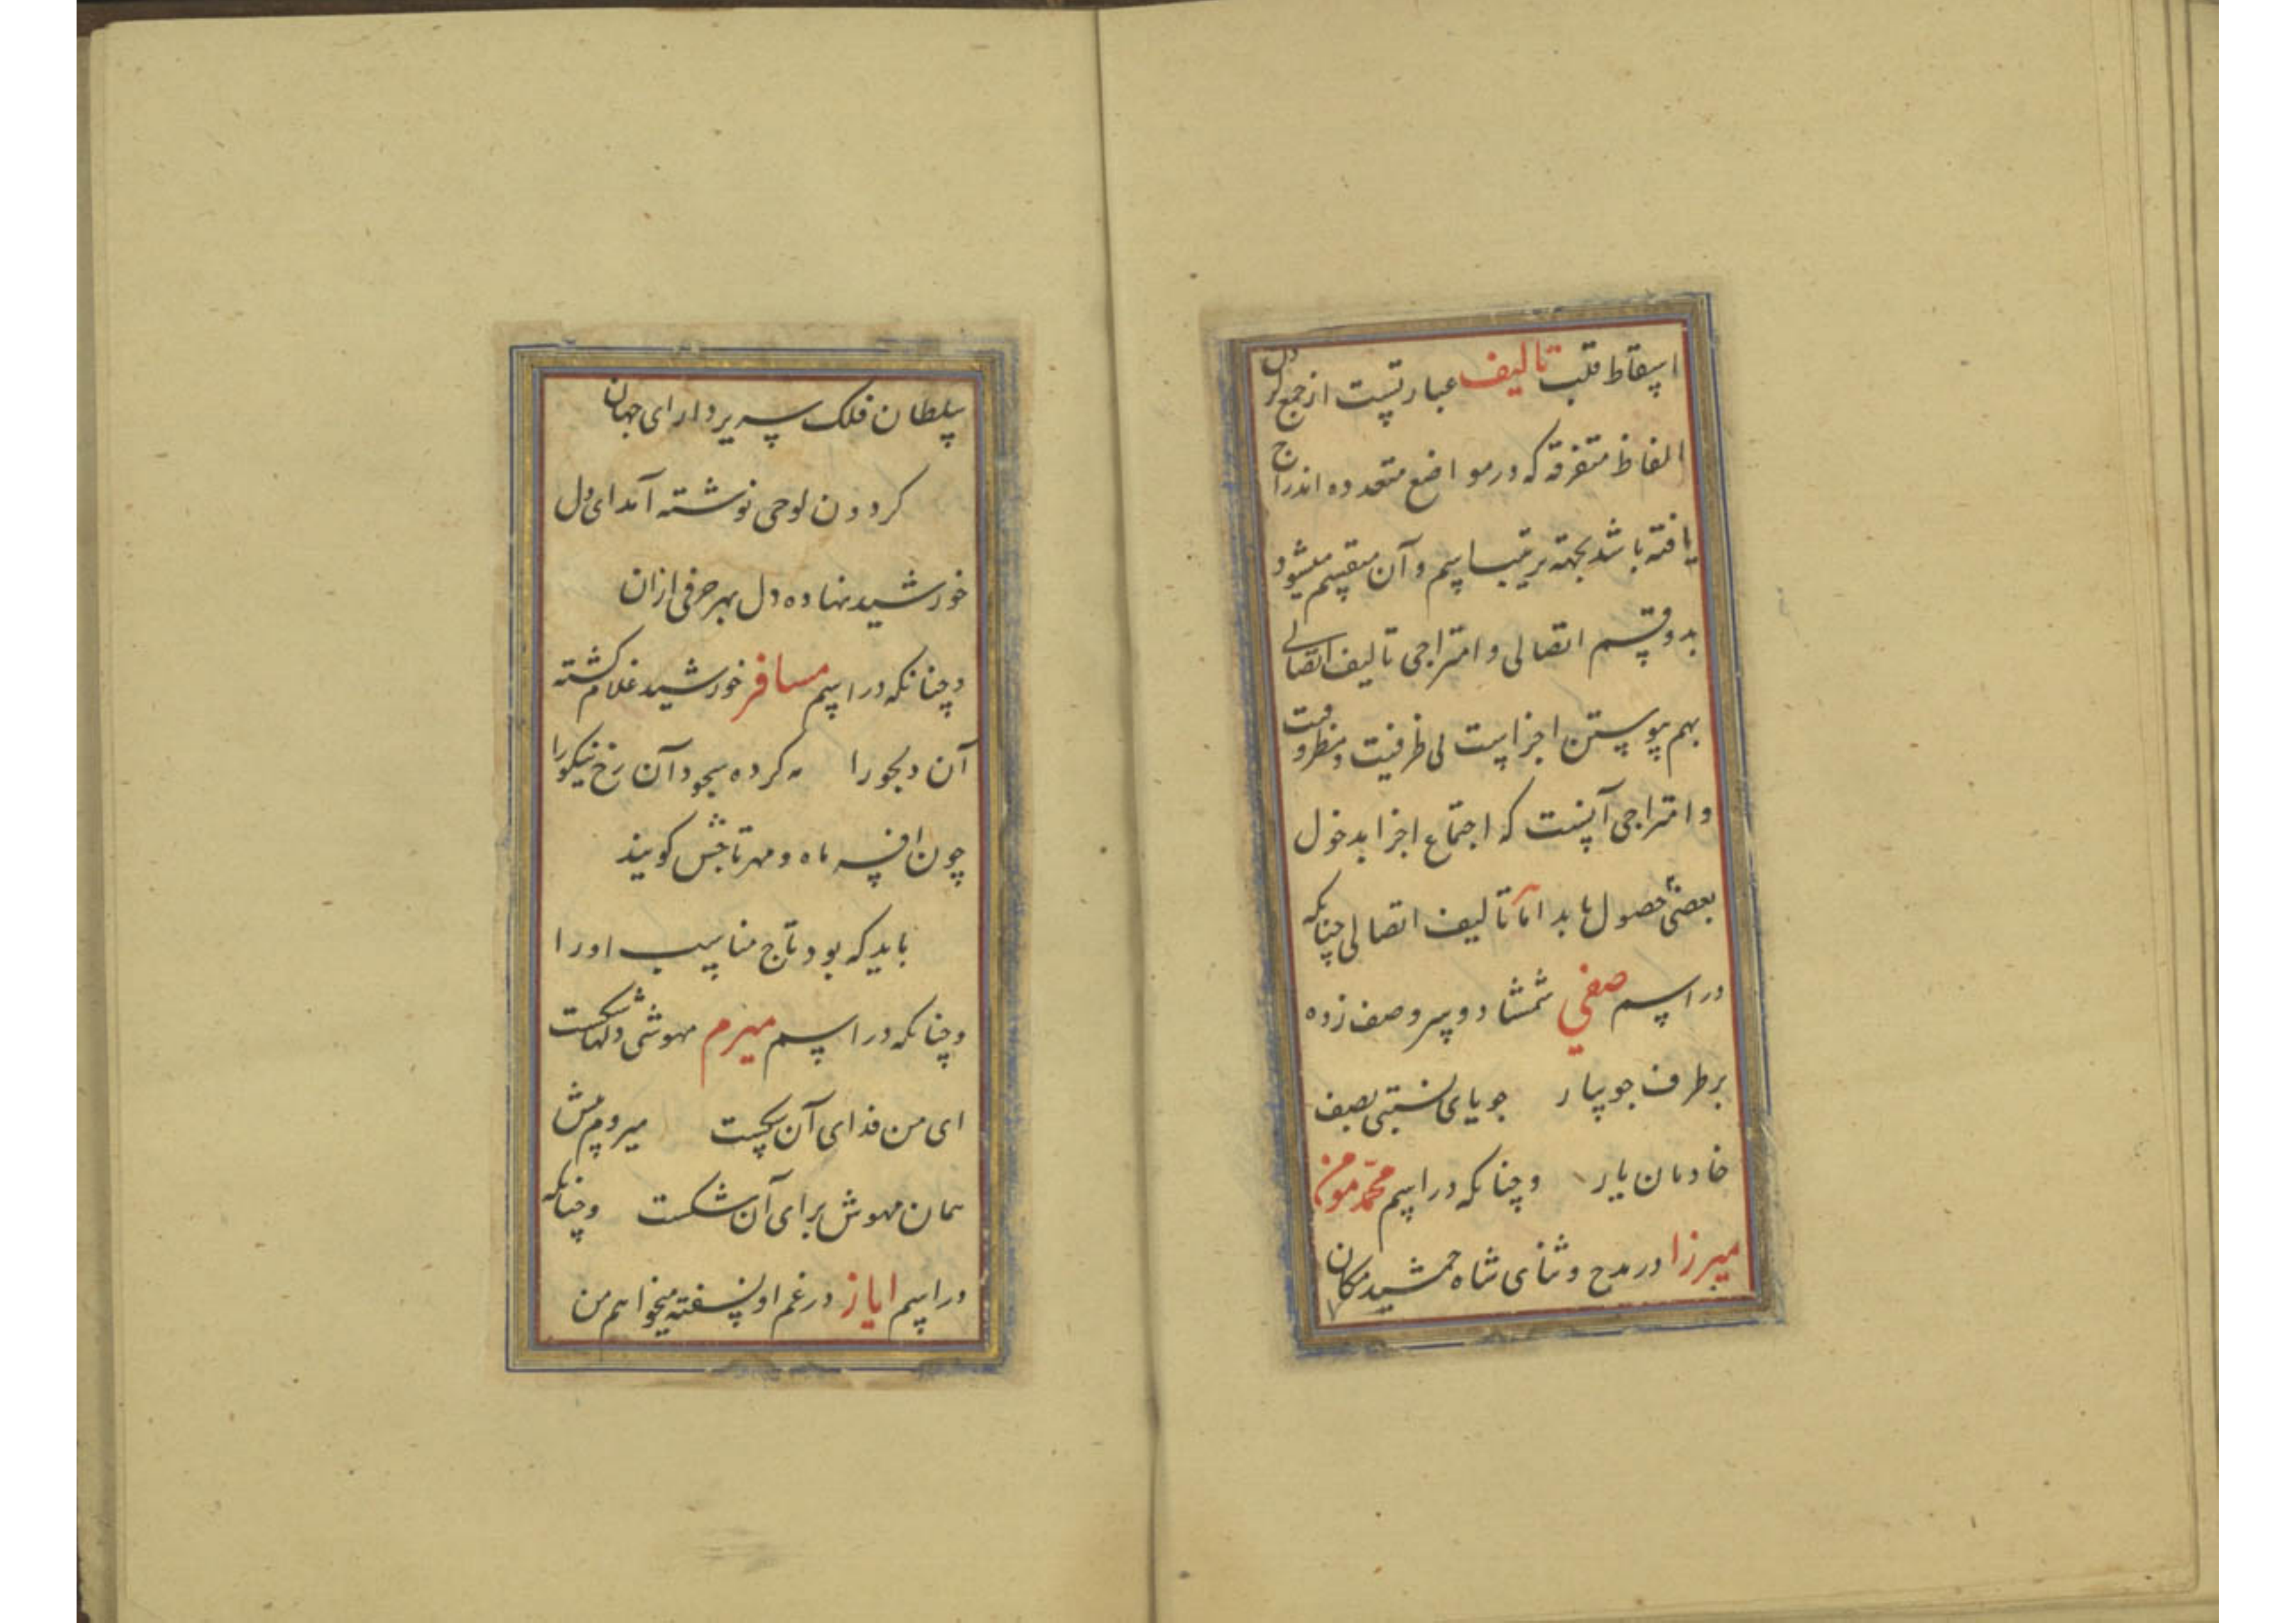 اسقاط قلب تالیف عبارتست از جمع کردن
الفاظ متفرقه که در مواضع متعدده اندراج
یافته باشد بجهته ترتیب اسم و آن منقسم میشود
بدو قسم اتصالی و امتزاجی تالیف اتصالی
بهم پیوستن اجزاست بی ظرفیت و مظروفیت
و امتزاجی آنست که اجتماع اجزا بدخول
بعضی حصول یابد اما تالیف اتصالی چنانکه
در اسم صفی شمشاد و سرو صف زده
بر طرف جویبار جویای نسبتی بصف
خادمان یار وچنانکه در اسم محمد مومن
میرزا در مدح و ثنای شاه جمشید مکان
سلطان فلک سریر دارای جهان
کردون لوحی نوشته آمد ای دل
خورشید نهاده دل بهر حرفی ازان
وچنانکه در اسم مسافر خورشید غلام کشته
آن دلجو را مه کرده سجود آن رخ نیکو را
چون افسر ماه و مهر تاجش کویند
باید که بود تاج مناسب او را
وچنانکه در اسم میرم مهوشی دلهاشکست
ای من فدای آن شکست میروم پیش
همان مهوش برای آن شکست وچنانکه
در اسم ایاز در غم او نهفته میخواهم من